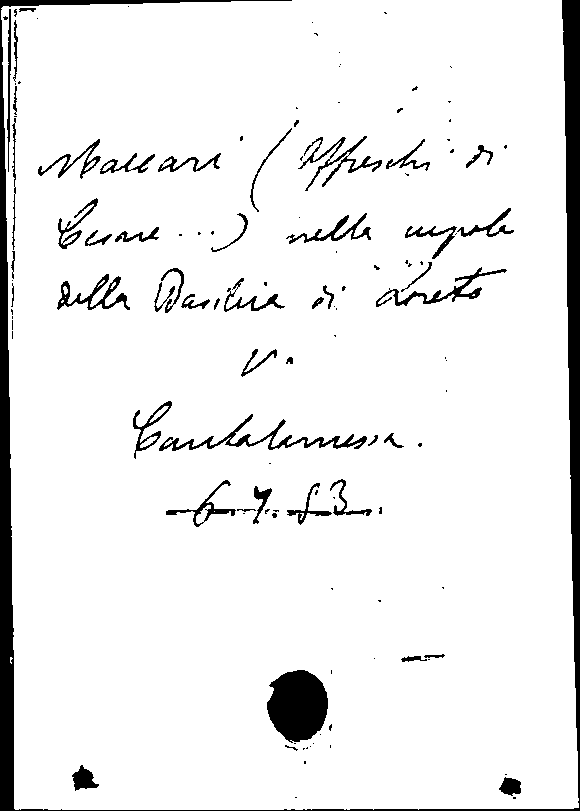 Maccari (Affreschi di
Cesare ...) nella cupola
della Basilica di Loreto
v.
Cantalamessa.
6.7.83.